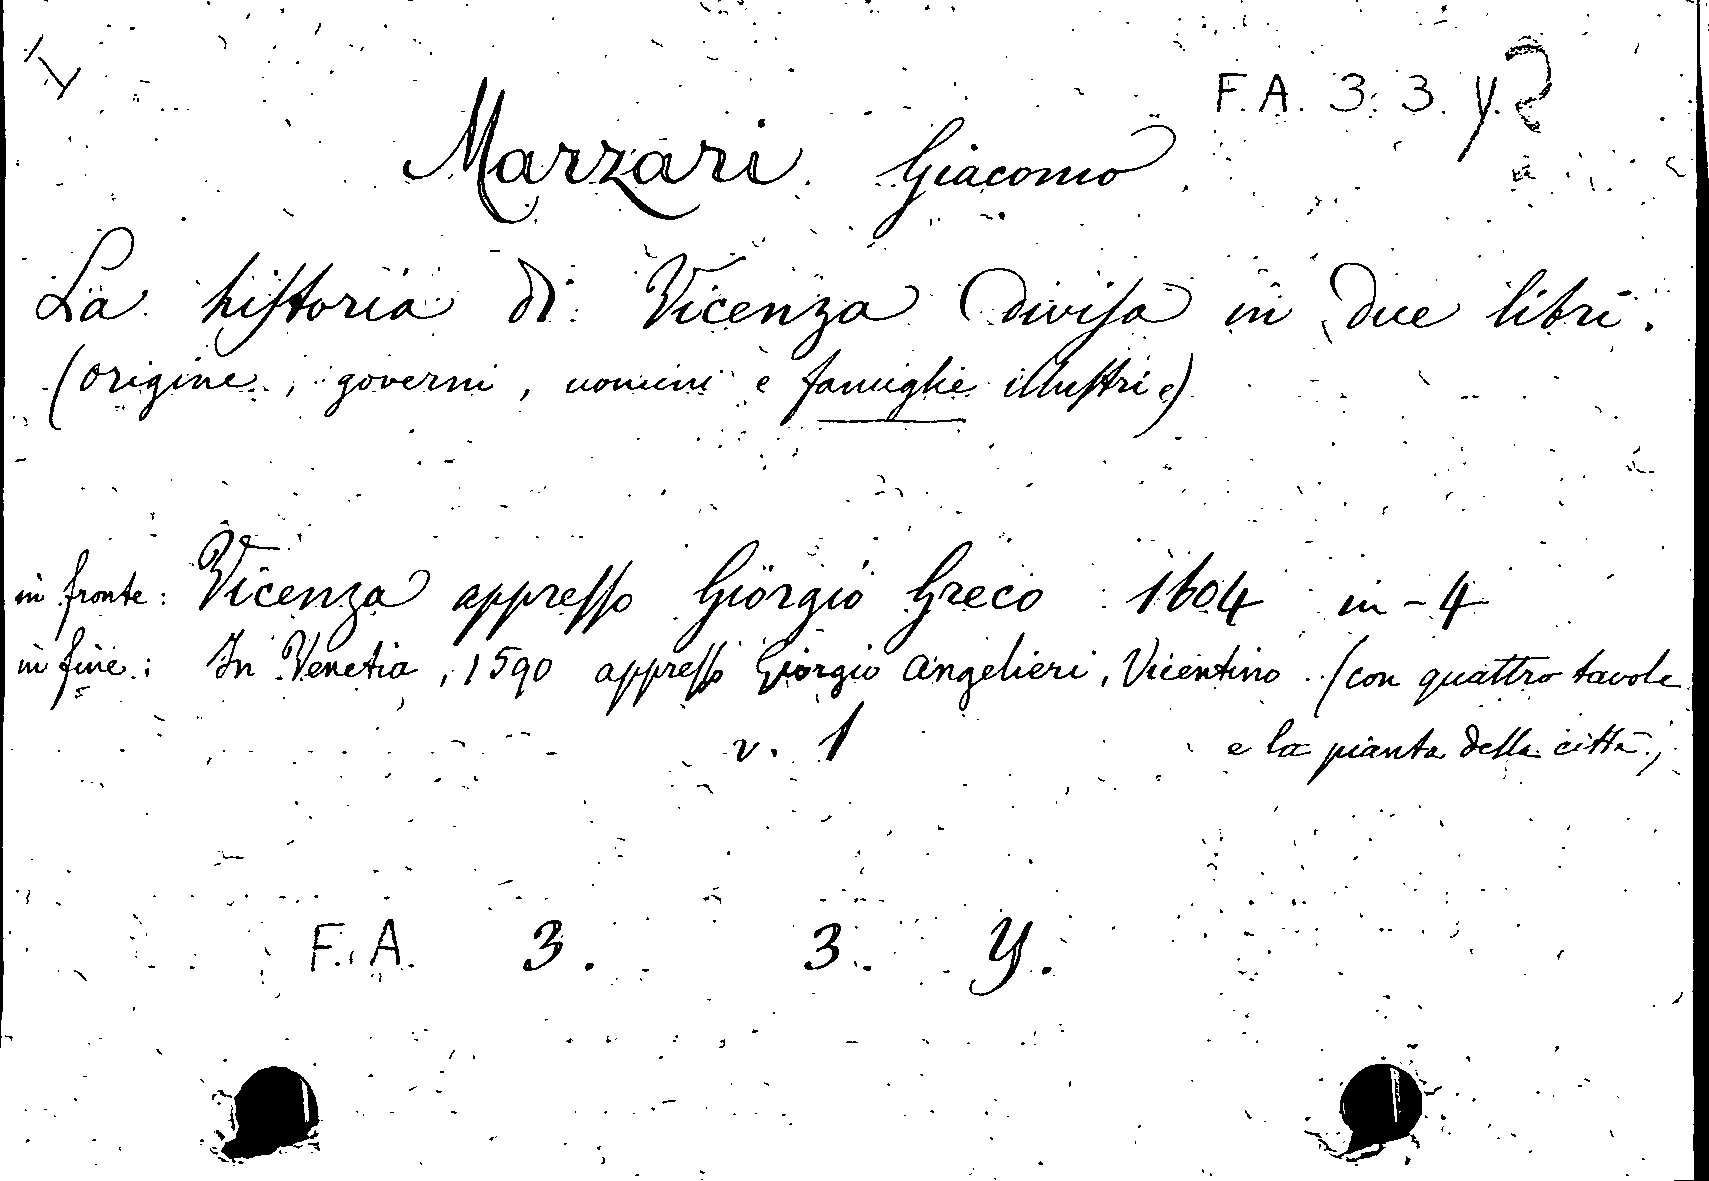 F. A. 3. 3. y. 2
Marzari Giacomo
La historia di Vicenza divisa in due libri.
(origine, governi, uomini e famiglie illustri)
in fronte: Vicenza appresso Giorgio Greco 1604 in-4
in fine: In Venetia, 1590 appresso Giorgio Angelieri, Vicentino (con quattro tavole
v. 1 e la pianta della città)
F. A. 3. 3. Y.